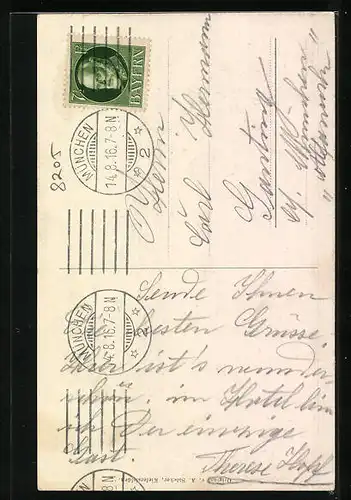 BAYERN
MÜNCHEN
14.8.16.7-8N
2
8205
Herrn
Carl Hermann
Gauting
b/ München
MÜNCHEN
14.8.16.7-8N
2
Sende Ihnen
die besten Grüsse.
Hier ist's wunder-
schön, im Hotel bin
ich der einzige
Gast.
Therese Hopf